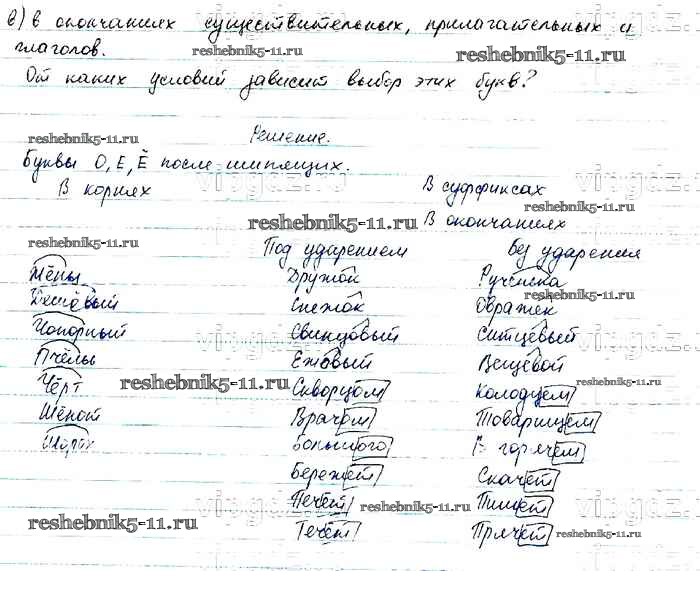 в) в окончаниях существительных, прилагательных и
глаголов. vipgdz.ru reshebnik5-11.ru
От каких условий зависит выбор этих букв?
reshebnik5-11.ru Решение.
Буквы О, Е, Ё после шипящих. vipgdz.ru
В корнях В суффиксах
reshebnik5-11.ru
reshebnik5-11.ru В окончаниях
reshebnik5-11.ru Под ударением Без ударения
Жёны Дружок Ручсика
reshebnik5-11.ru
Дешёвый Снежок Овражек
Чопорный Свинцовый Ситцевый
Пчёлы Ежовый Вещевой
Чёрт reshebnik5-11.ru Скворцом Колодцем reshebnik5-11.ru
Шёпот Врачом Товарищем
Шорох Большого В горячем
Бережёт Скачет
Печёт reshebnik5-11.ru Пишет vipgdz.ru
reshebnik5-11.ru Течёт Прячет reshebnik5-11.ru